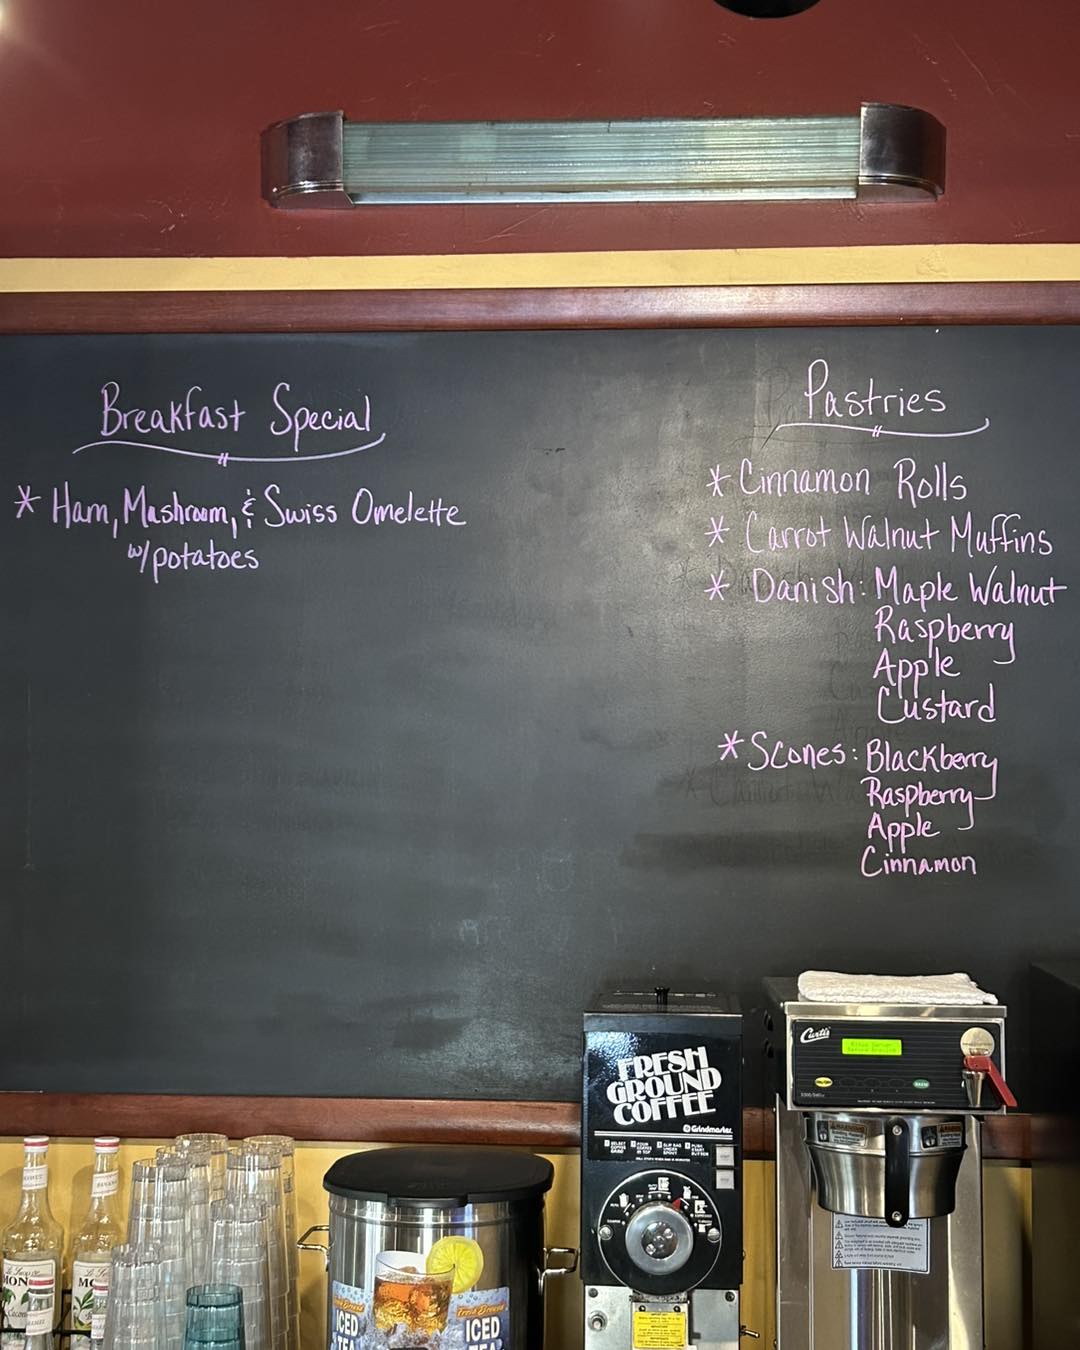 Breakfast Special
* Ham, Mushroom, & Swiss Omelette
w/potatoes
Pastries
* Cinnamon Rolls
* Carrot Walnut Muffins
* Danish: Maple Walnut
Raspberry
Apple
Custard
* Scones: Blackberry
Raspberry
Apple
Cinnamon
FRESH
GROUND
COFFEE
Grindmaster
Curtis
ICED
TEA
ICED
TEA